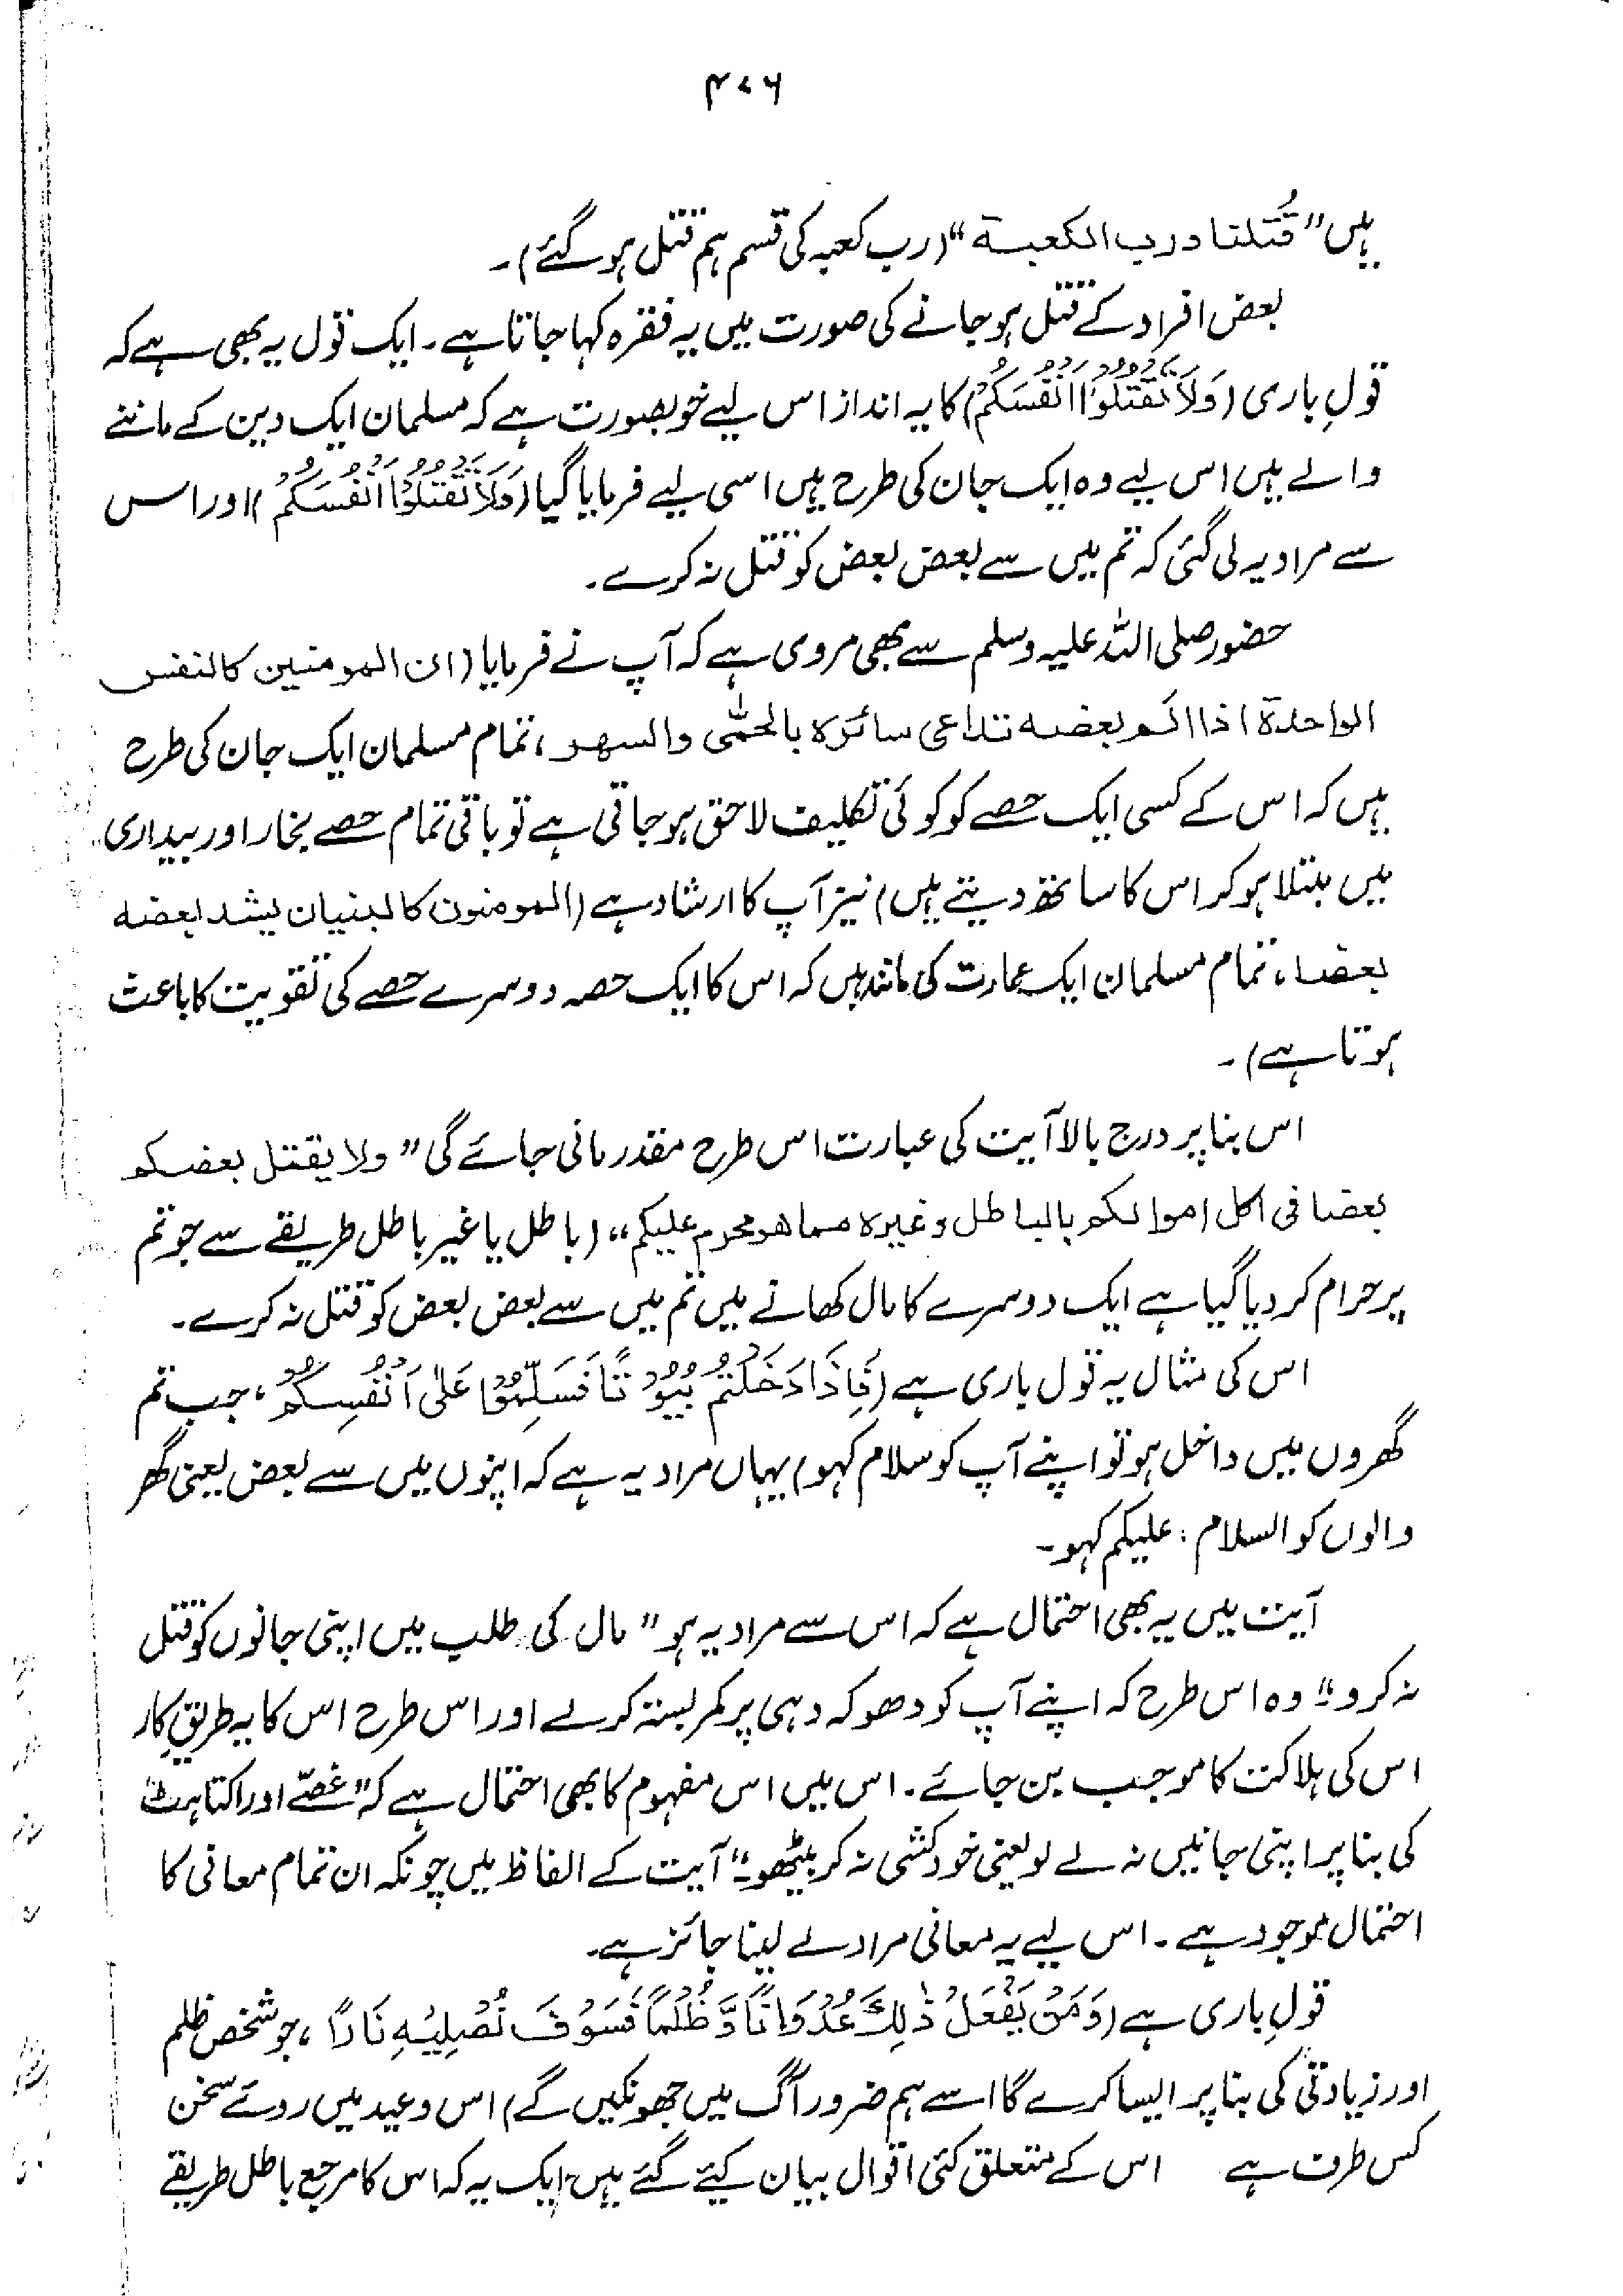 ۴۷۶
ہیں "قُتلنا ورب الکعبۃ" (رب کعبہ کی قسم ہم قتل ہو گئے)۔
بعض افراد کے قتل ہو جانے کی صورت میں یہ فقرہ کہا جاتا ہے۔ ایک قول یہ بھی ہے کہ
قولِ باری (وَلَا تَقْتُلُوْا اَنْفُسَكُمْ) کا یہ انداز اس لیے خوبصورت ہے کہ مسلمان ایک دین کے ماننے
والے ہیں اس لیے وہ ایک جان کی طرح ہیں اسی لیے فرمایا گیا (وَلَا تَقْتُلُوْا اَنْفُسَكُمْ) اور اس
سے مراد یہ لی گئی کہ تم میں سے بعض بعض کو قتل نہ کرے۔
حضور صلی اللہ علیہ وسلم سے بھی مروی ہے کہ آپ نے فرمایا (ان المومنین کالنفس
الواحدۃ اذا الم بعضہ تداعی سائرہ بالحمّٰی والسھر، تمام مسلمان ایک جان کی طرح
ہیں کہ اس کے کسی ایک حصے کو کوئی تکلیف لاحق ہو جاتی ہے تو باقی تمام حصے بخار اور بیداری
میں مبتلا ہو کر اس کا ساتھ دیتے ہیں) نیز آپ کا ارشاد ہے (المومنون کالبنیان یشد بعضہ
بعضا، تمام مسلمان ایک عمارت کی مانند ہیں کہ اس کا ایک حصہ دوسرے حصے کی تقویت کا باعث
ہوتا ہے)۔
اس بنا پر درج بالا آیت کی عبارت اس طرح مقدر مانی جائے گی "ولا یقتل بعضکم
بعضا فی اکل اموالکم بالباطل وغیرہ مما ھو محرم علیکم" (باطل یا غیر باطل طریقے سے جو تم
پر حرام کر دیا گیا ہے ایک دوسرے کا مال کھانے میں تم میں سے بعض بعض کو قتل نہ کرے۔
اس کی مثال یہ قول باری ہے (فَاِذَا دَخَلْتُمْ بُيُوْتًا فَسَلِّمُوْا عَلٰى اَنْفُسِكُمْ، جب تم
گھروں میں داخل ہو تو اپنے آپ کو سلام کہو) یہاں مراد یہ ہے کہ اپنوں میں سے بعض یعنی گھر
والوں کو السلام: علیکم کہو۔
آیت میں یہ بھی احتمال ہے کہ اس سے مراد یہ ہو "مال کی طلب میں اپنی جانوں کو قتل
نہ کرو" وہ اس طرح کہ اپنے آپ کو دھوکہ دہی پر کمر بستہ کرلے اور اس طرح اس کا یہ طریقِ کار
اس کی ہلاکت کا موجب بن جائے۔ اس میں اس مفہوم کا بھی احتمال ہے کہ "غصّے اور اکتاہٹ
کی بنا پر اپنی جانیں نہ لے لو یعنی خودکشی نہ کر بیٹھو۔" آیت کے الفاظ میں چونکہ ان تمام معانی کا
احتمال موجود ہے۔ اس لیے یہ معانی مراد لے لینا جائز ہے۔
قولِ باری ہے (وَمَنْ يَّفْعَلْ ذٰلِكَ عُدْوَانًا وَّظُلْمًا فَسَوْفَ نُصْلِيْهِ نَارًا، جو شخص ظلم
اور زیادتی کی بنا پر ایسا کرے گا اسے ہم ضرور آگ میں جھونکیں گے) اس وعید میں روئے سخن
کس طرف ہے اس کے متعلق کئی اقوال بیان کیے گئے ہیں، ایک یہ کہ اس کا مرجع باطل طریقے